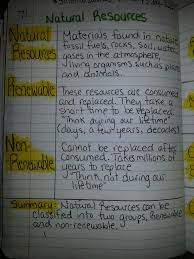 Natural Resources
Natural Resources
Materials found in nature
fossil fuels, rocks, soil, water
gases in the atmosphere,
living organisms such as plants
and animals.
Renewable
These resources are consumed
and replaced. They take a
short time to be replaced.
"Think during our lifetime"
(days, a few years, decades)
Non-Renewable
Cannot be replaced after
consumed. Takes millions of
years to replace
"Think not during our
lifetime"
Summary: Natural Resources can be
classified into two groups, renewable
and non-renewable.